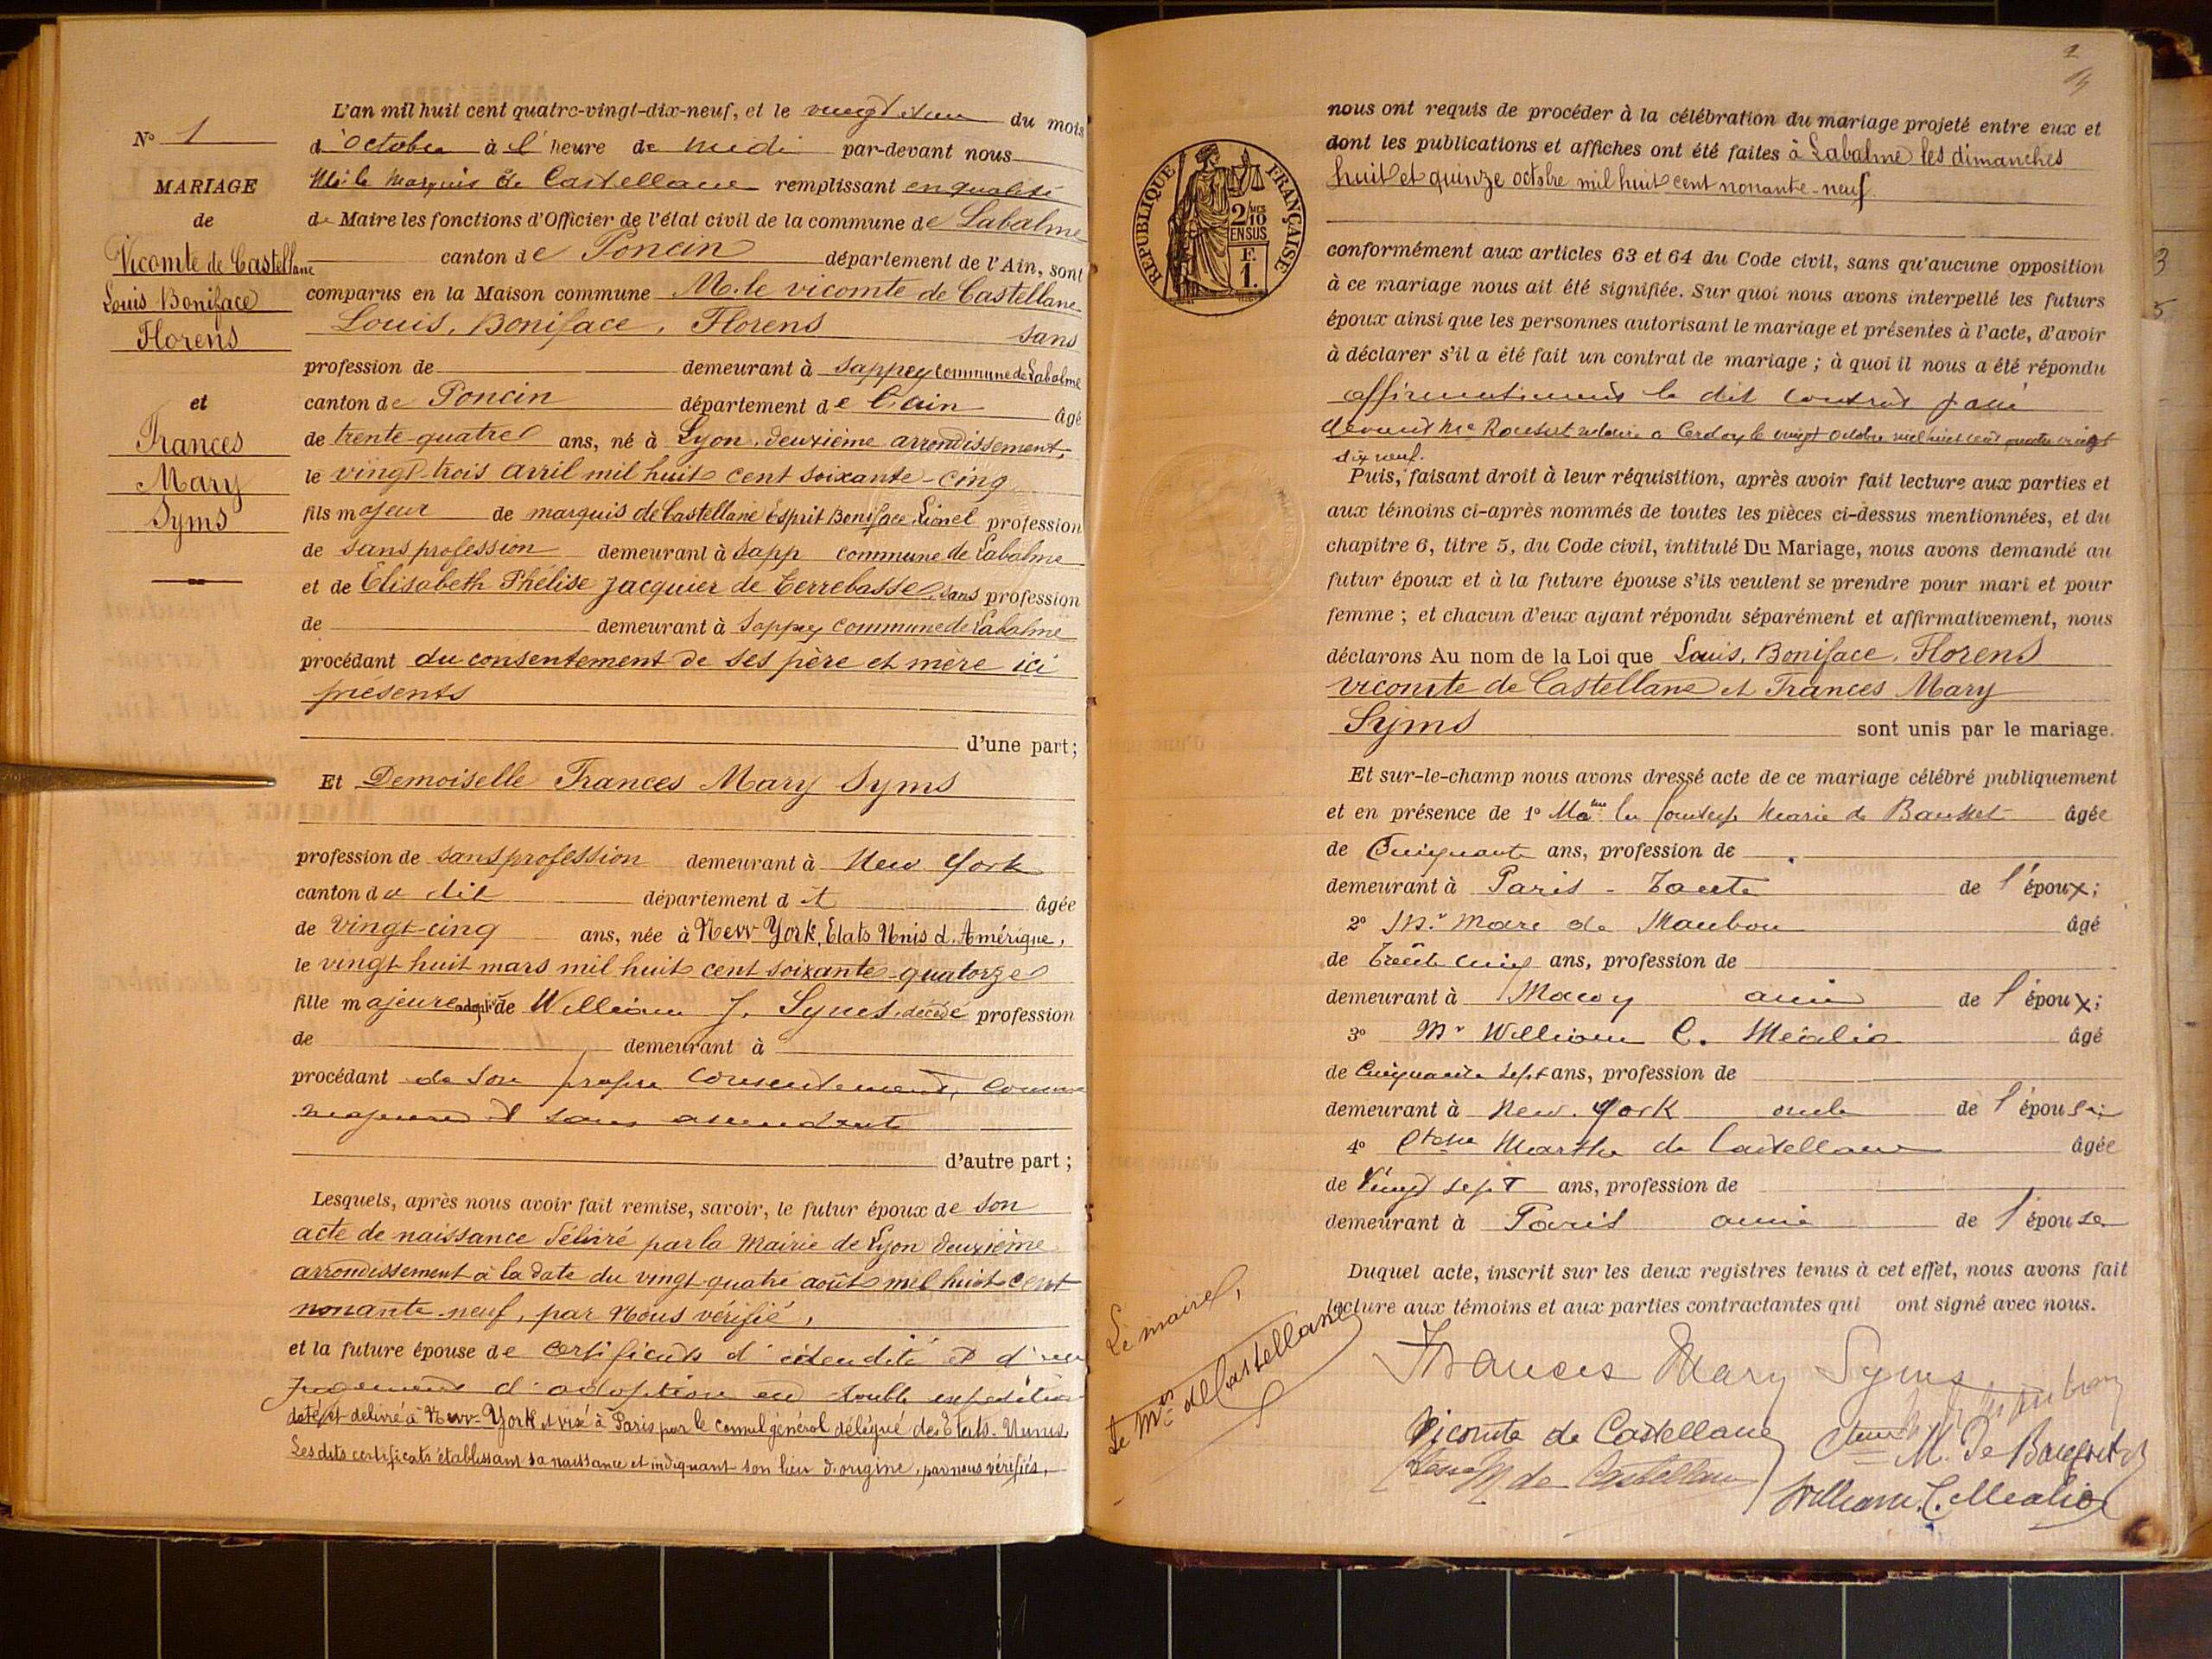 N° 1
MARIAGE
de
Vicomte de Castellane
Louis Boniface
Florens
et
Frances
Mary
Syms
L'an mil huit cent quatre-vingt-dix-neuf, et le vingt et un du mois
d'Octobre à l'heure de Midi par-devant nous
Mr. le Marquis de Castellane remplissant en qualité
de Maire les fonctions d'Officier de l'état civil de la commune de Labalme
canton de Poncin département de l'Ain, sont
comparus en la Maison commune M. le vicomte de Castellane
Louis, Boniface, Florens sans
profession de demeurant à Sappey commune de Labalme
canton de Poncin département de l'ain âgé
de trente-quatre ans, né à Lyon, deuxième arrondissement,
le vingt-trois avril mil huit cent soixante-cinq
fils majeur de marquis de Castellane Esprit Boniface, Lionel profession
de sans profession demeurant à Sapp commune de Labalme
et de Elisabeth Phélise Jacquier de Terrebasse, sans profession
de demeurant à Sappey commune de Labalme
procédant du consentement de ses père et mère ici
présents
d'une part;
Et Demoiselle Frances Mary Syms
profession de sans profession demeurant à New York
canton du dit département d et âgée
de vingt-cinq ans, née à New York, Etats Unis d'Amérique,
le vingt huit mars mil huit cent soixante-quatorze
fille majeure adoptive de William J. Syms, décédé profession
de demeurant à
procédant de son propre consentement, comme
majeure et sans ascendants
d'autre part;
Lesquels, après nous avoir fait remise, savoir, le futur époux de son
acte de naissance délivré par la Mairie de Lyon deuxième
arrondissement à la date du vingt-quatre août mil huit cent
nonante-neuf, par Nous vérifié,
et la future épouse de certificats d'identité et d'un
jugement d'adoption en double expédition
daté et délivré à New-York et visé à Paris par le consul général délégué des Etats-Unis,
Les dits certificats établissant sa naissance et indiquant son lieu d'origine, par nous vérifiés,
1
REPUBLIQUE FRANÇAISE
2/10
EN SUS
F.
1.
nous ont requis de procéder à la célébration du mariage projeté entre eux et
dont les publications et affiches ont été faites à Labalme les dimanches
huit et quinze octobre mil huit cent nonante-neuf
conformément aux articles 63 et 64 du Code civil, sans qu'aucune opposition
à ce mariage nous ait été signifiée. Sur quoi nous avons interpellé les futurs
époux ainsi que les personnes autorisant le mariage et présentes à l'acte, d'avoir
à déclarer s'il a été fait un contrat de mariage; à quoi il nous a été répondu
affirmativement le dit contrat passé
devant Me notaire à Cerdon le vingt octobre mil huit cent quatre vingt
dix neuf.
Puis, faisant droit à leur réquisition, après avoir fait lecture aux parties et
aux témoins ci-après nommés de toutes les pièces ci-dessus mentionnées, et du
chapitre 6, titre 5, du Code civil, intitulé Du Mariage, nous avons demandé au
futur époux et à la future épouse s'ils veulent se prendre pour mari et pour
femme; et chacun d'eux ayant répondu séparément et affirmativement, nous
déclarons Au nom de la Loi que Louis, Boniface, Florens
vicomte de Castellane et Frances Mary
Syms sont unis par le mariage.
Et sur-le-champ nous avons dressé acte de ce mariage célébré publiquement
et en présence de 1° Mame la Comtesse Marie de Bausset âgée
de Cinquante ans, profession de
demeurant à Paris - Tante de l'époux;
2° Mr. Marc de Maubou âgé
de Trente cinq ans, profession de
demeurant à ami de l'époux;
3° Mr William C. Mealio âgé
de Cinquante sept ans, profession de
demeurant à New-York oncle de l'épouse;
4° Ctesse Marthe de Castellane âgée
de Vingt sept ans, profession de
demeurant à Paris amie de l'épouse
Duquel acte, inscrit sur les deux registres tenus à cet effet, nous avons fait
lecture aux témoins et aux parties contractantes qui ont signé avec nous.
Le maire,
Le Mis de Castellane
Frances Mary Syms
Vicomte de Castellane
M. de Bausset
M. de Castellane
William. C. Mealio